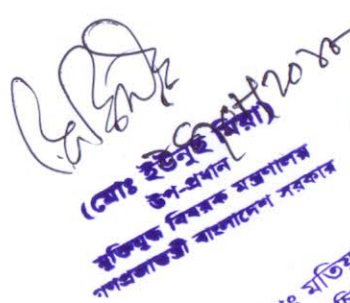 (মোঃ ইউনুছ মিয়া)
উপ-প্রধান
মুক্তিযুদ্ধ বিষয়ক মন্ত্রণালয়
গণপ্রজাতন্ত্রী বাংলাদেশ সরকার